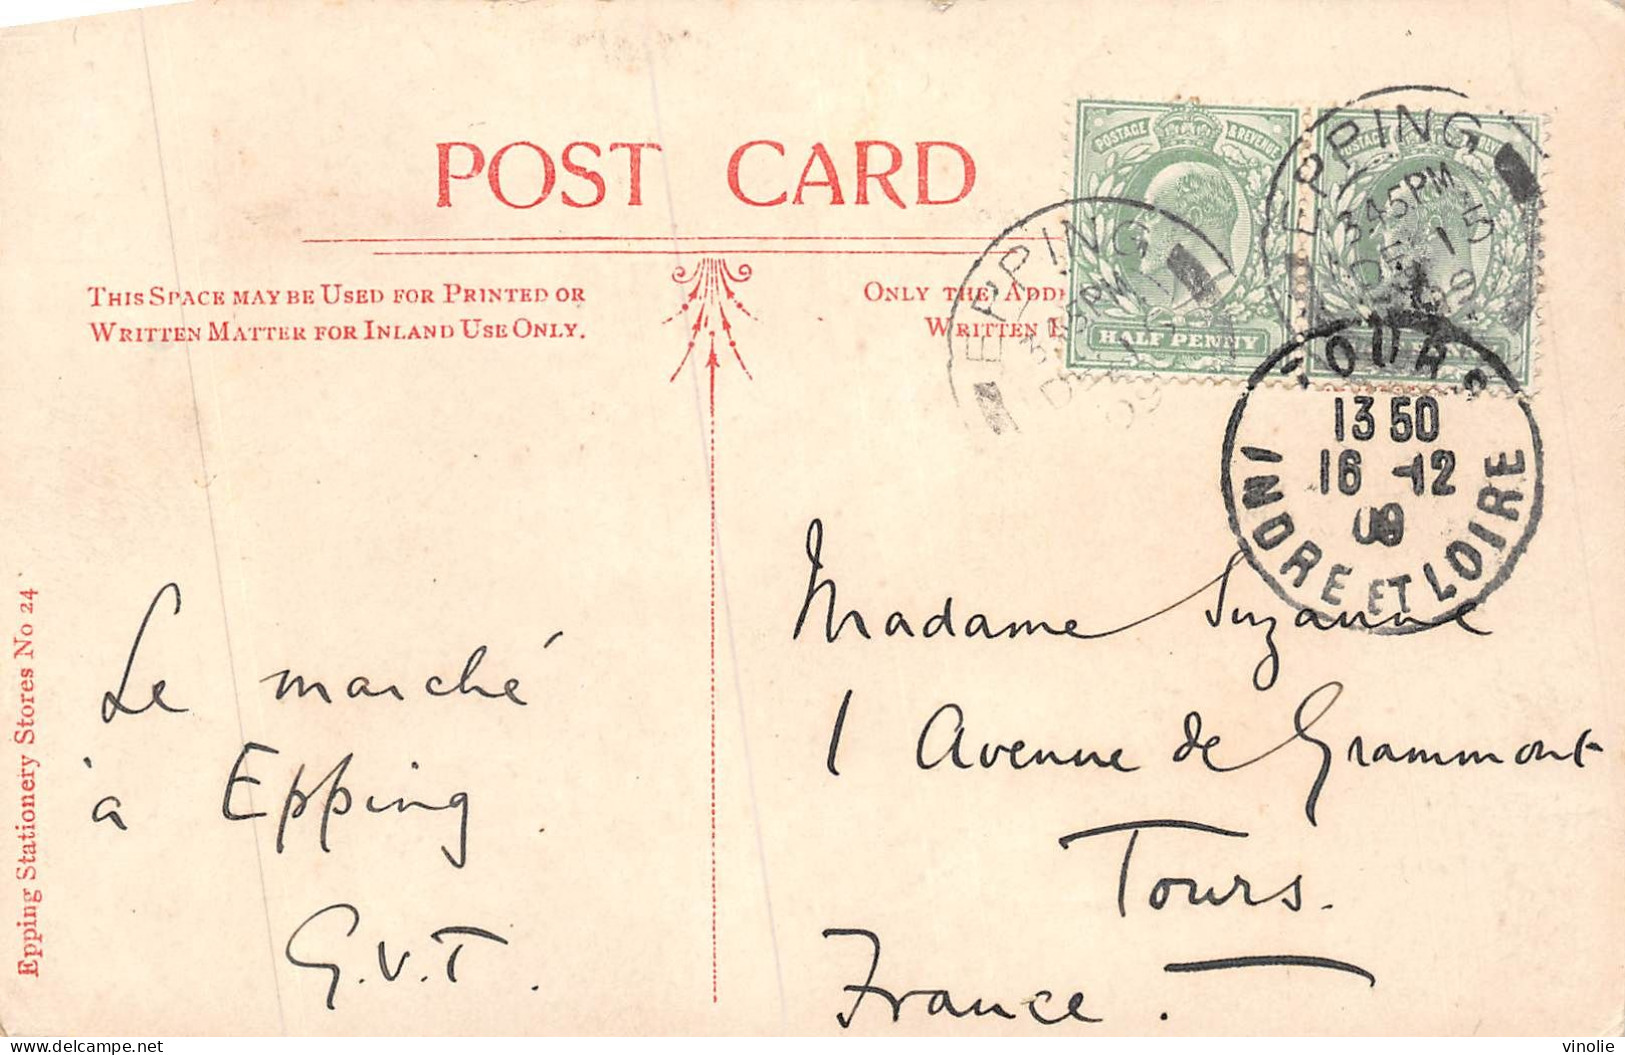 POST CARD
THIS SPACE MAY BE USED FOR PRINTED OR
WRITTEN MATTER FOR INLAND USE ONLY.
ONLY THE
WRITTEN
POSTAGE & REVENUE
HALF PENNY
EPPING
DE 15
09
EPPING
3.45PM
DE 15
09
TOURS
13 50
16 -12
09
INDRE ET LOIRE
Le marché
à Epping
G.V.T.
Madame Suzanne
1 Avenue de Grammont
Tours.
France.
Epping Stationery Stores No 24
delcampe.net
vinolie